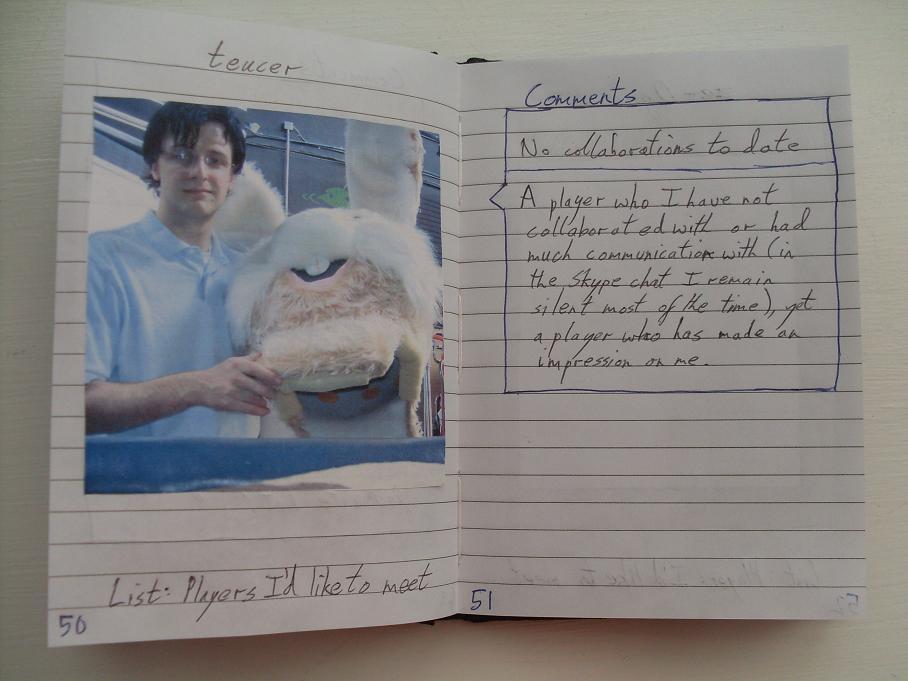 teucer
List: Players I'd like to meet
50
Comments
No collaborations to date
A player who I have not
collaborated with or had
much communication with (in
the Skype chat I remain
silent most of the time), yet
a player who has made an
impression on me.
51